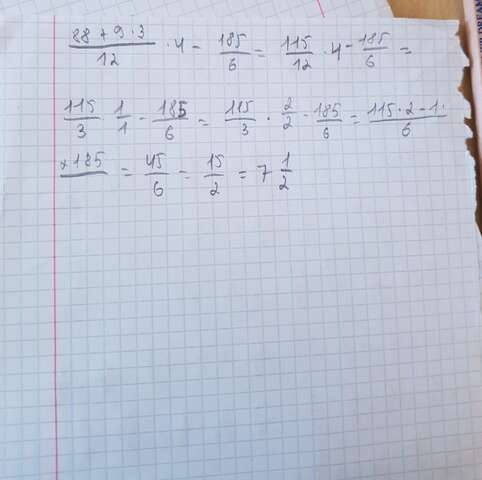 (88 + 9 · 3)/12 · 4 - 185/6 = 115/12 · 4 - 185/6 =
115/3 · 1/1 - 185/6 = 115/3 · 2/2 - 185/6 = (115 · 2 - 1 ·)/6
× 185 = 45/6 = 15/2 = 7 1/2